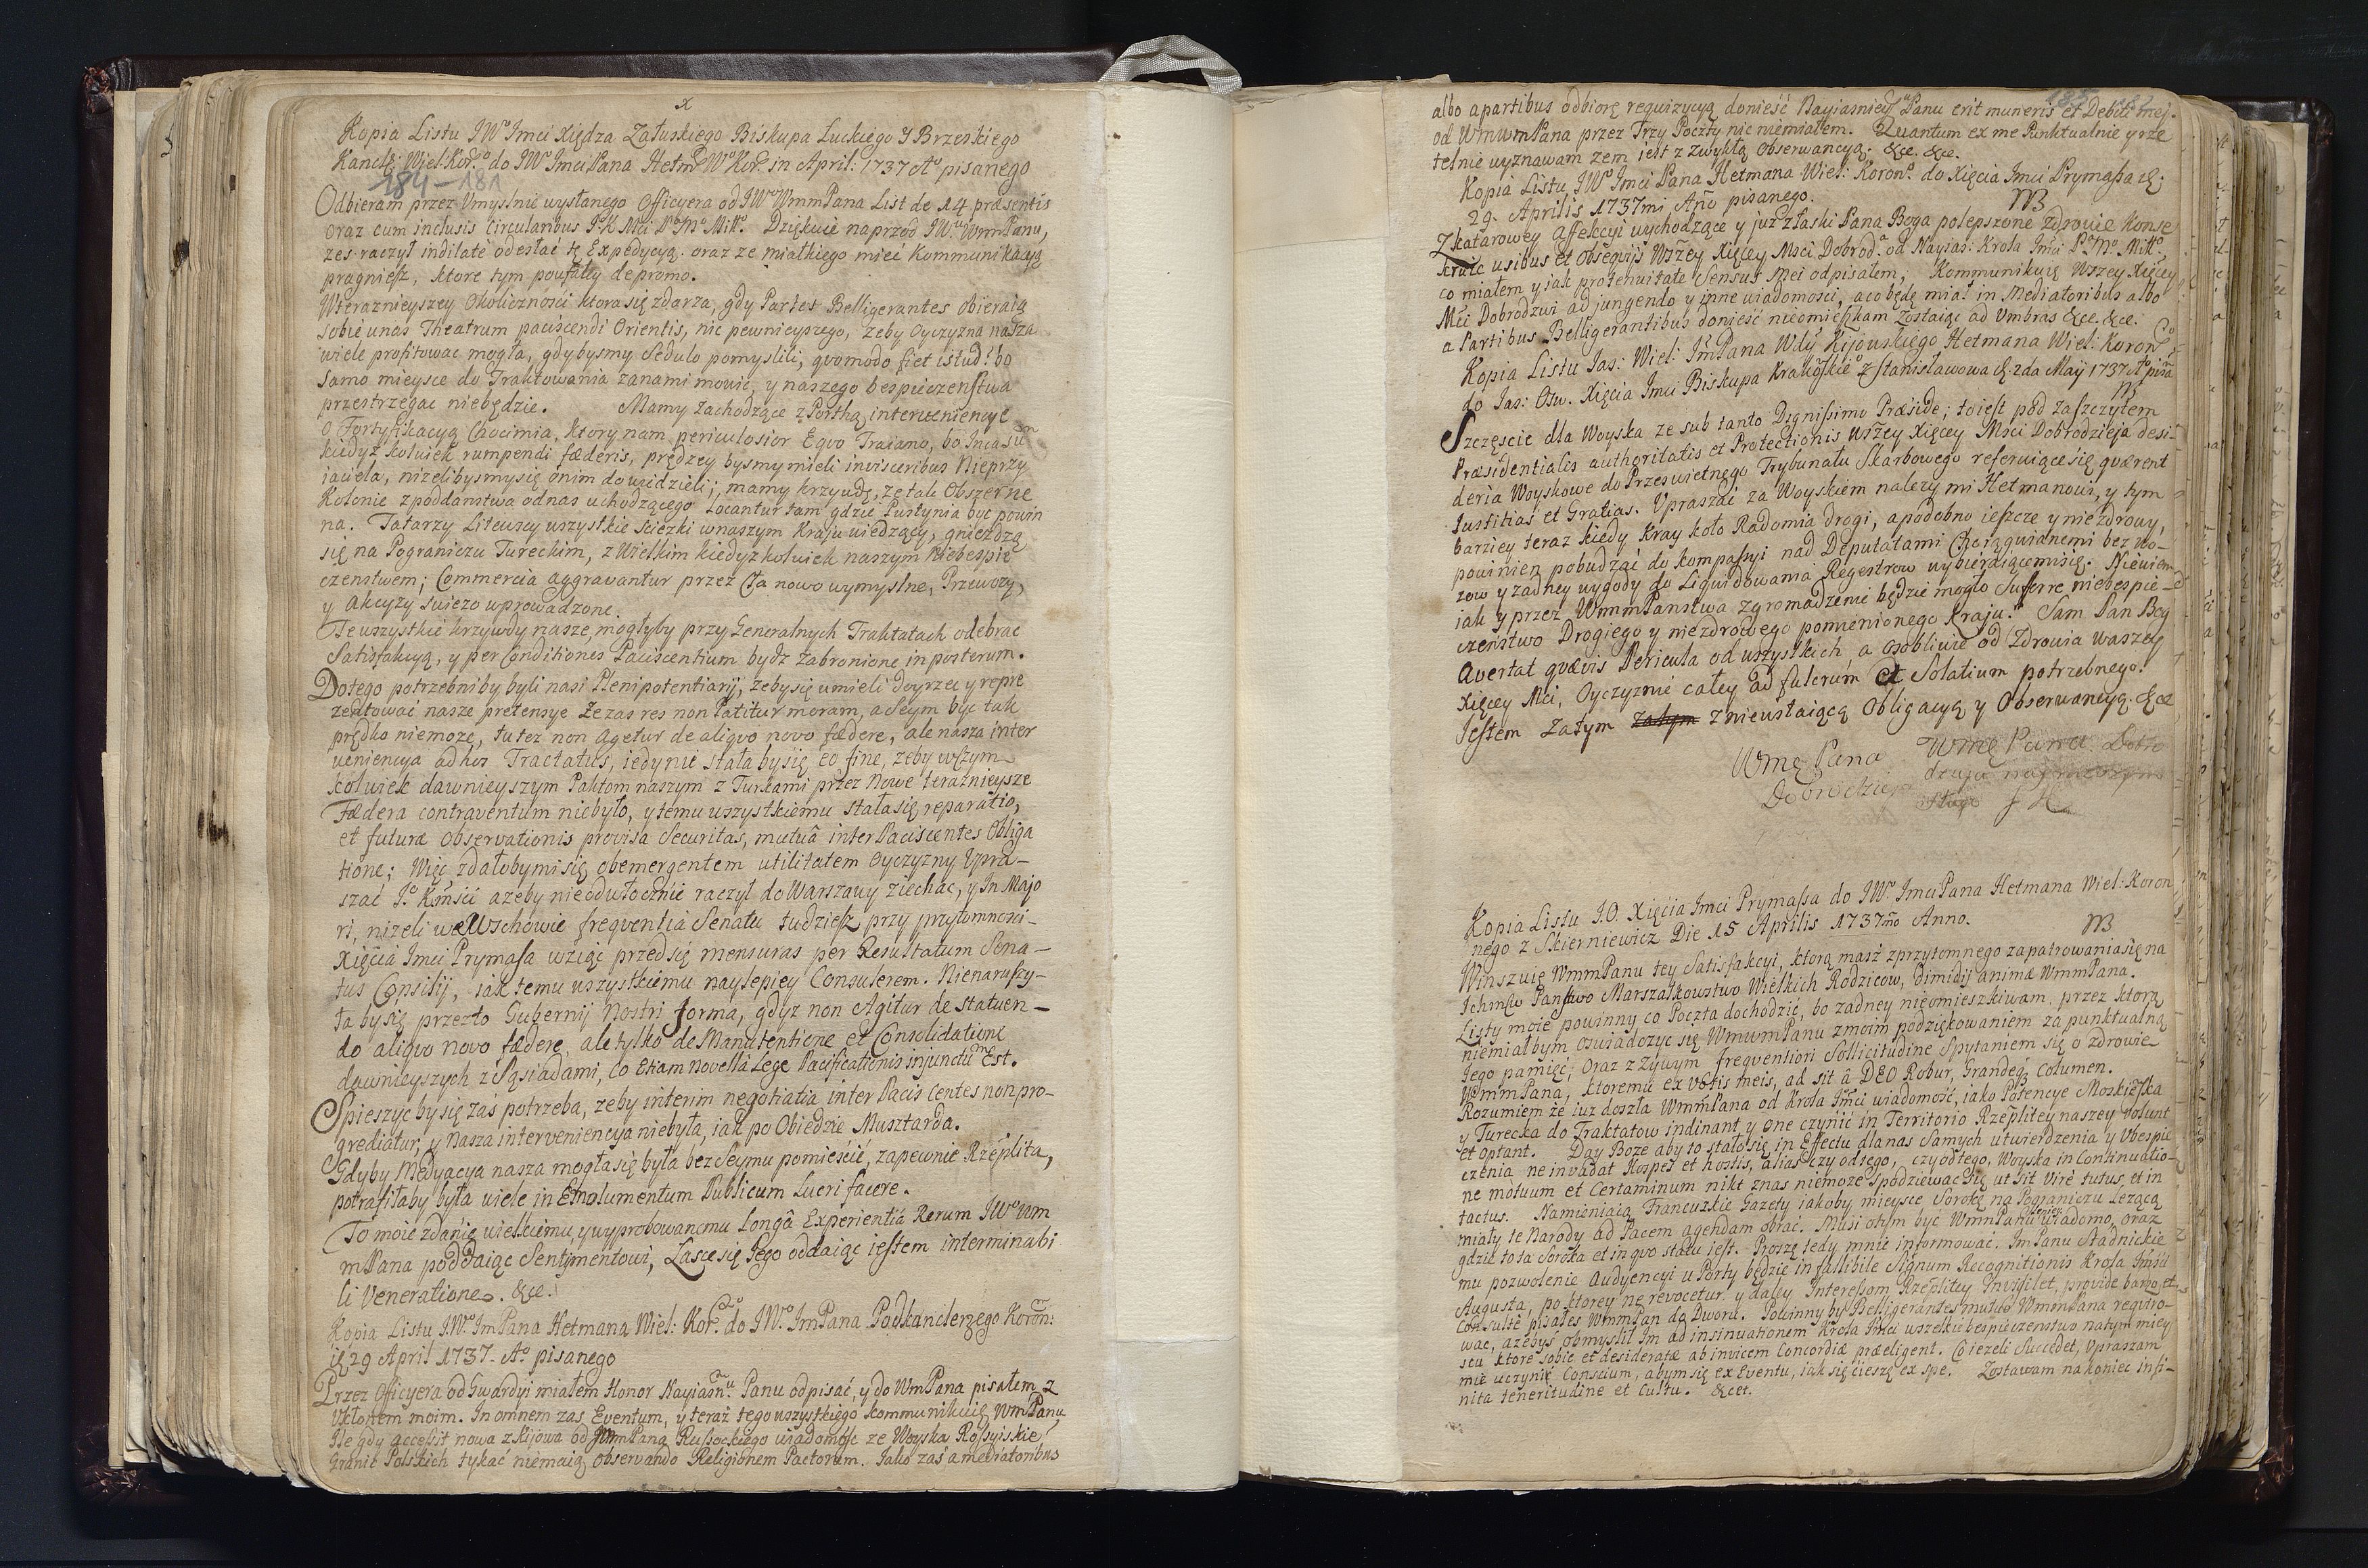 x
Kopia Listu JWo Imci Xiędza Załuskiego Biskupa Luckiego Y Brzeskiego
Kancle: Wiel: Kor: do JWo Imci Pana Hetm: Wo Kor: in April: 1737 Ao pisanego
184 - 181
Odbieram przez Vmyslnie wysłanego Officyera od JWo WmmPana List de 14 præsentis
oraz cum inclusis Circularibus Jo K Mci Pa Mo Miłło. Dziękuię naprzod JWu WmmPanu,
zes raczył indilatè odesłać tę Expedycyą. oraz ze miałkiego mieć Kommunikacyą
pragniesz, ktore tym poufaley depromo.
Wteraznieyszey Okolicznosci ktora się zdarza, gdy Partes Belligerantes obieraią
sobie unas Theatrum paciscendi Orientis, nic pewnieyszego, zeby Oyczyzna nasza
wiele profitowac mogła, gdybysmy Sedulo pomyslili, qvomodo fiet istud? bo
samo mieysce do Traktowania zanami mowić, y naszego bespieczenstwa
przestrzegac niebędzie. Mamy zachodzące z Porthą interveniencye
o Fortyfikacyą Chocimia, ktory nam periculosior Eqvo Traiano, bo Incasum
kiedyż kolwiek rumpendi fæderis, prędzey bysmy mieli invisceribus Nieprzy
iaciela, nizelibysmy się onim dowiedzieli; mamy krzywdę, ze tak Obszerne
Kolonie z poddanstwa odnas uchodzącego Locantur tam gdzie Pustynia byc powin
na. Tatarzy Litewscy wszystkie sciezki wnaszym Kraju wiedzący, gniezdzą
się na Pograniczu Tureckim, z Wielkim kiedyz kolwiek naszym Niebespie
czenstwem; Commercia aggravantur przez Cła nowo wymyslne, Przewozy,
y Akcyzy swiezo wprowadzone.
Te wszystkie krzywdy nasze, mogłyby przy Generalnych Traktatach odebrac
Satisfakcyą, y per Conditiones Paciscentium bydz zabronione in posterum.
Do tego potrzebniby byli nasi Plenipotentiarij, zeby się umieli doyrzec y repre
zentować nasze pretensye Ze zas res non Patitur moram, a Seym byc tak
prędko niemoze, tutez non Agetur de aliqvo novo fædere, ale nasza inter
veniencya ad hos Tractatus, iedynie stała by się eo fine, zeby wczym
kolwiek dawnieyszym Paktom naszym z Turkami przez Nowe teraznieysze
Fædera contraventum niebyło, y temu wszystkiemu stała się reparatio,
et futuræ Observationis provisa Securitas, mutuâ inter Paciscentes Obliga
tione; Więc zdałoby mi się obemergentem utilitatem Oyczyzny Vpra-
szać Jo Kmści azeby nieodwłocznie raczył do Warszawy ziechac, y In Majo
ri, nizeli we Wschowie freqventiâ Senatu tudziesz przy przytomnosci-
Xięcia Imci Prymasa wziąc przed się mensuras per Resultatum Sena-
tus Consilij, iak temu wszystkiemu naylepiey Consulerem. Nienaruszy-
ła by się przezto Gubernij Nostri forma, gdyz non Agitur de statuen-
do aliqvo novo fædere, ale tylko de Manutentione et Consolidatione
dawnieyszych z Sąsiadami, co Etiam novella Lege Pacificationis injunctum Est.
Spieszyc by się zaś potrzeba, zeby interim negotiatia inter Pacis Centes non pro-
grediatur, y nasza interveniencya niebyła, iak po Obiedzie Musztarda.
Gdyby Medyacya nasza mogła się była bez Seymu pomieścić, zapewnie Rzeplita,
potrafiłaby była wiele in Emolumentum Publicum Lucri facere.
To moie zdanie wielkiemu, y wyprobowanemu Longâ Experientiâ Rerum JWo Wm
mPana poddaiąc Sentymentowi, Łasce się Jego oddaiąc iestem interminabi
li Veneratione. &ce.
Kopia Listu J.Wo ImPana Hetmana Wiel: Kor: do JWo ImPana Podkanclerzego Koron:
29 April 1737. Ao pisanego
Przez Officyera od Gwardyi miałem Honor Nayiasn: Panu odpisać, y do WmPana pisałem z
Vkłonem moim. In omnem zas Eventum, y teraz tego wszystkiego kommunikuię WmPanu
Ile gdy accessit nowa z Kijowa od ImPana Russockiego wiadomość ze Woyska Rossyiskie
Granic Polskich tykać niemaią observando Religionem Pactorum. Jako zaś a mediatoribus
albo apartibus odbiorę reqwizycyą donieść Nayiasniey: Panu erit muneris et Debiti mej.
od WmwmPana przez Trzy Poczty nic niemiałem. Quantum ex me Punktualnie y rze
telnie wyznawam zem jest z zwykłą Obserwancyą. &ce. &ce.
Kopia Listu JWo Imci Pana Hetmana Wiel: Koron: do Xięcia Imci Prymassa
29. Aprilis 1737mi Ano pisanego. NB
Zkatarowey Affekcyi wychodzące y juz złaski Pana Boga polepszone zdrowie Konse
kruię usibus et obseqvijs Wszey Xięcey Msci Dobrod: od Nayias: Krola Imci Pa Mo Miłło
co miałem y jak protenuitate Sensus Mei odpisałem, Kommunikuię Wszey Xięcey
Mści Dobrodzwi adjungendo y inne wiadomosci, a co będę miał in Mediatoribus albo
a Partibus Belligerantibus donieść nieomieszkam Zostaiąc ad Vmbras &ce. &ce.
Kopia Listu Jas: Wiel: ImPana Wdy Kijowskiego Hetmana Wiel: Koron:
do Jas: Osw. Xięcia Imci Biskupa Krakowskie z Stanisławowa d. 2da Maij 1737 Ao pisa
Szczęscie dla Woyska ze sub tanto Dignissimo Præside; to iest pod Zaszczytem
Præsidentialis authoritatis et Protectionis Wszey Xięcey Msci Dobrodzieja desi-
deria Woyskowe do Przeswietnego Trybunału Skarbowego referuiące się qværent
Iustitias et Gratias. Vpraszać za Woyskiem nalezy mi Hetmanowi, y tym
barziey teraz kiedy Kray koło Radomia drogi, apodobno ieszcze y niezdrowy,
powinien pobudzać do kompassyi nad Deputatami Chorągwianemi bez wo-
zow y zadney wygody do Liqwidowania Regestrow wybieraiącemi się. Niewiem
iak y przez WmmPanstwa zgromadzenie będzie mogło Sufferre niebespie-
czeństwo Drogiego y niezdrowego pomienionego Kraju? Sam Pan Bog
Avertat qvævis Pericula od wszystkich a osobliwie od Zdrowia Waszey
Xięcey Mci, Oyczyznie całey ad fulcrum et Solatium potrzebnego.
Jestem Zatym zatym znieustaiącą Obligacyą y Obserwancyą. &ce
Wmę Pana Wmę Pana Dobro
Dobrodzieja
sługa
Kopia Listu J.O. Xięcia Imci Prymassa do JWo Imci Pana Hetmana Wiel: Koron
nego z Skierniewicz Die 15 Aprilis 1737mo Anno. NB
Winszuię WmmPanu tey Satisfakcyi, ktorą masz zprzytomnego zapatrowania się na
Ichmsw Panstwo Marszałkowstwo Wielkich Rodzicow, Dimidij animæ WmmPana.
Listy moie powinny co Poczta dochodzić, bo zadney nieomieszkiwam, przez ktorą
niemiałbym oswiadczyc się WmwmPanu zmoim podziękowaniem za punktualną
Jego pamięć; oraz z Zywym freqventiori Sollicitudine Spytaniem się o zdrowie
WmmPana, ktoremu ex votis meis, ad sit â DEO Robur, Grandeq; Columen.
Rozumiem że iuz doszła WmmPana od Krola Imci wiadomość, iako Potencye Moskiewska
y Turecka do Traktatow indinant, y one czynić in Territorio Rzeplitey naszey volunt
et optant. Day Boze aby to stało się in Effectu dla nas Samych utwierdzenia y Vbespie
czenia ne invadat Hospes et hostis, alias czy odtego, czy odtego, Woyska in Continuatio-
ne motuum et Certaminum nikt znas niemoze Spodziewac Się ut Sit Vire tutus, et in
tactus. Namieniaią Francuzkie Gazety jakoby mieysce Sorokę na Pograniczu Lezącą
miały te Narody ad Pacem agendam obrać. Musi otym być WmnPanu wiadomo, oraz
gdzie to ta Soroka et in qvo statu jest. Proszę tedy mnie informować. ImPanu Stadnickie
mu pozwolenie Audyencyi u Porty będzie infallibile Signum Recognitionis Krola Imści
Augusta, po ktorey ne revocetur y daley Interessom Rzeplitey Invigilet, provide barzo et
Consultè pisałes WmmPan do Dworu. Powinny by Belligerantes mutuo WmmPana reqviro-
wac, azebys obmyslił Im ad insinuationem Krola Imci wszelkie bespieczenstwo na tym miey
scu ktore sobie et desideratæ ab invicem Concordiæ præeligent. Co iezeli Succedet, Vpraszam
mie uczynić Conscium, abym się ex Eventu, iak się cieszę ex spe. Zostawam na koniec infi-
nita teneritudine et Cultu. &cet.